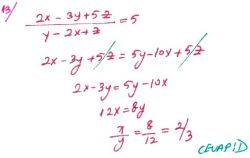 13) (2x - 3y + 5z) / (y - 2x + z) = 5
2x - 3y + 5z = 5y - 10x + 5z
2x - 3y = 5y - 10x
12x = 8y
x/y = 8/12 = 2/3
CEVAP D